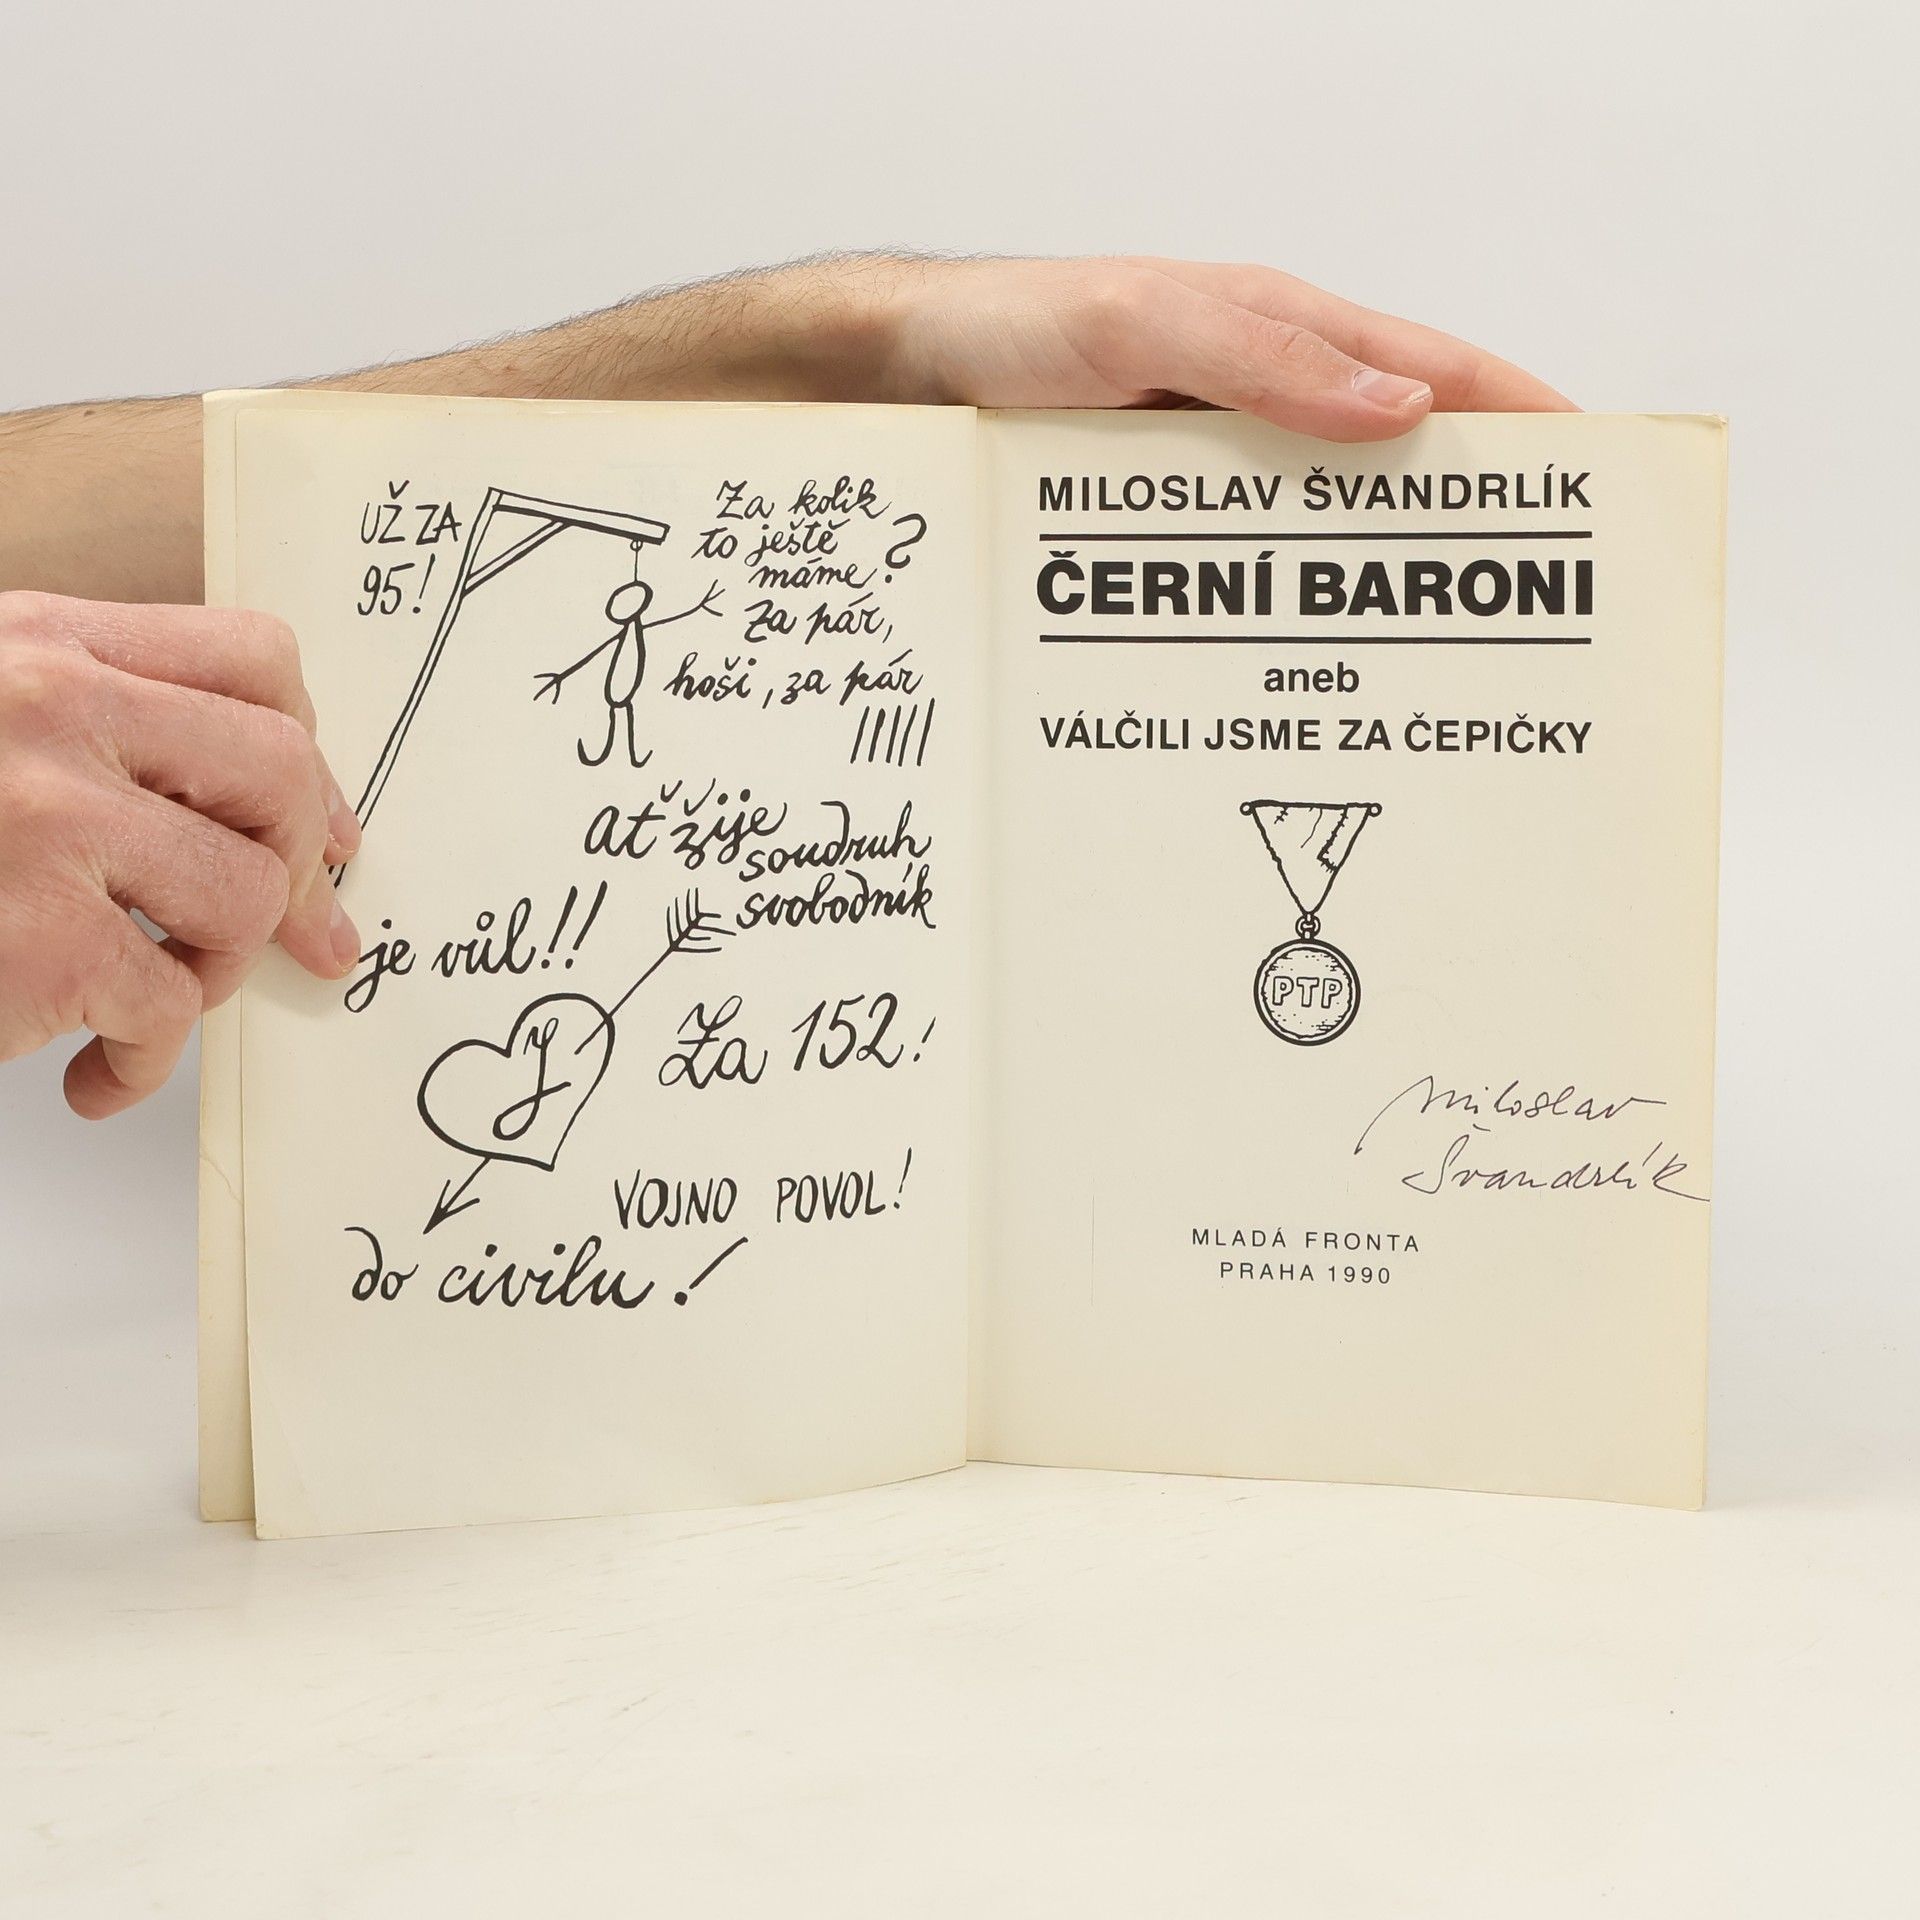 UŽ ZA
95!
Za kolik
to ještě
máme?
Za pár,
hoši, za pár
ať žije
soudruh
svobodník
je vůl!!
Y
Za 152!
VOJNO POVOL!
do civilu!
MILOSLAV ŠVANDRLÍK
ČERNÍ BARONI
aneb
VÁLČILI JSME ZA ČEPIČKY
PTP
Miloslav
Švandrlík
MLADÁ FRONTA
PRAHA 1990